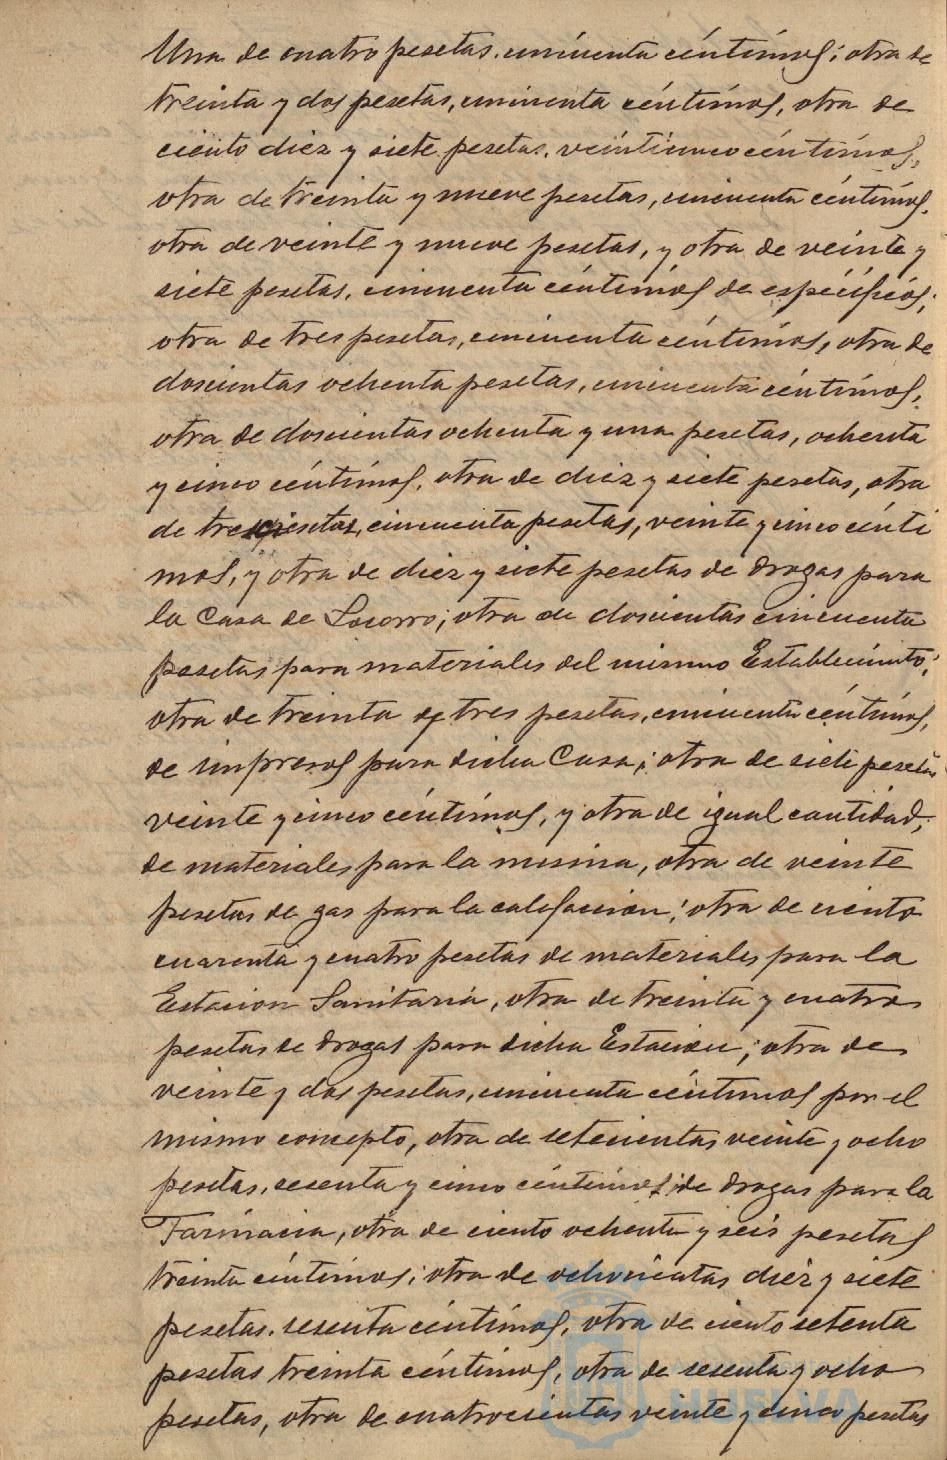 Una de cuatro pesetas, cincuenta céntimos; otra de
treinta y dos pesetas, cincuenta céntimos, otra de
ciento diez y siete pesetas, veinticinco céntimos,
otra de treinta y nueve pesetas, cincuenta céntimos,
otra de veinte y nueve pesetas, y otra de veinte y
siete pesetas, cincuenta céntimos de específicos;
otra de tres pesetas, cincuenta céntimos, otra de
doscientas ochenta pesetas, cincuenta céntimos,
otra de doscientas ochenta y una pesetas, ochenta
y cinco céntimos, otra de diez y siete pesetas, otra
de trescientas, cincuenta pesetas, veinte y cinco cénti
mos, y otra de diez y siete pesetas de drogas para
la Casa de Socorro; otra de doscientas cincuenta
pesetas para materiales del mismo Establecimiento;
otra de treinta y tres pesetas, cincuenta céntimos,
de impresos para dicha Casa; otra de siete pesetas
veinte y cinco céntimos, y otra de igual cantidad,
de materiales para la misma, otra de veinte
pesetas de gas para la calefaccion; otra de ciento
cuarenta y cuatro pesetas de materiales para la
Estacion Sanitaria, otra de treinta y cuatro
pesetas de drogas para dicha Estacion; otra de
veinte y dos pesetas, cincuenta céntimos por el
mismo concepto, otra de setecientas veinte y ocho
pesetas, sesenta y cinco céntimos; de drogas para la
Farmacia, otra de ciento ochenta y seis pesetas
treinta céntimos; otra de ochocientas diez y siete
pesetas, sesenta céntimos, otra de ciento setenta
pesetas treinta céntimos, otra de sesenta y ocho
pesetas, otra de cuatrocientas veinte y cinco pesetas
HUELVA